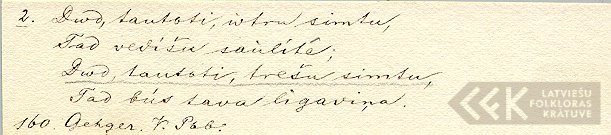 2. Dwd, tautoti, wtru simtu,
Tad vedíšu saulítê;
Dwd, tautoti, trešu simtu,
Tad bús tava ligaviņa.
160. Gehger. V. Pab.
LATVIEŠU
FOLKLORAS
KRĀTUVE